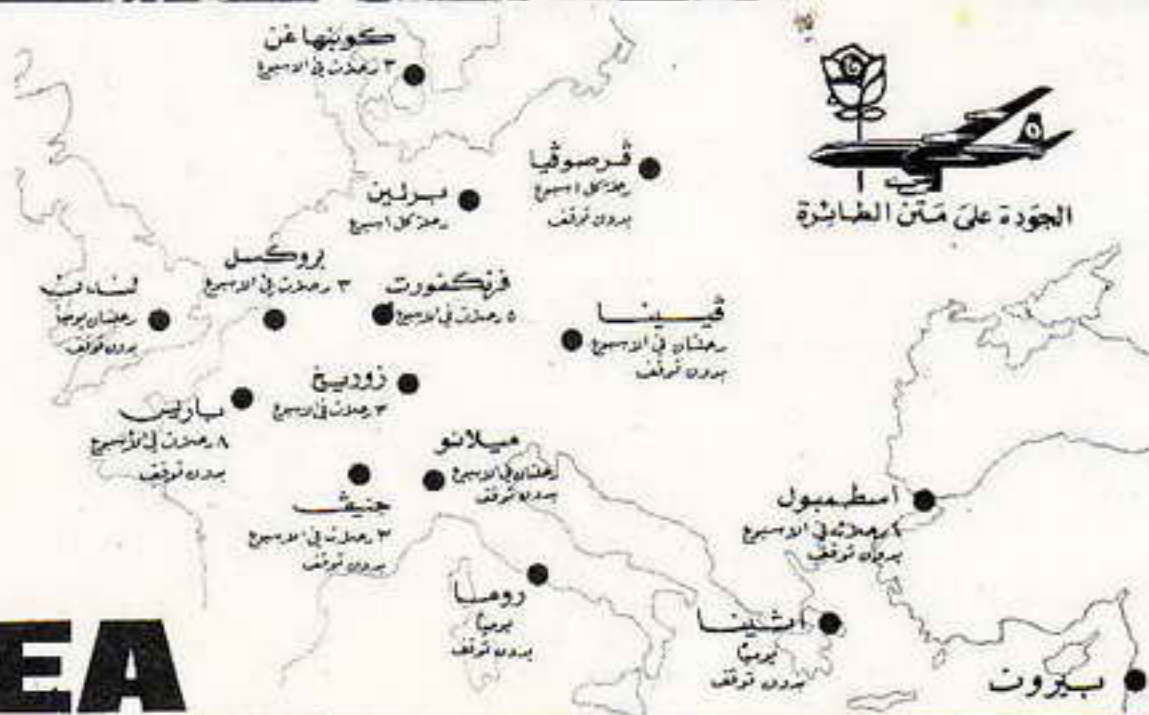 كوبنهاغن
٣ رحلات في الاسبوع
ڤرصوڤيا
رحلة كل اسبوع
بدون توقف
الجودة على متن الطائرة
برلين
رحلة كل اسبوع
بروكسل
٣ رحلات في الاسبوع
فرنكفورت
٥ رحلات في الاسبوع
لندن
رحلتان يومياً
بدون توقف
ڤيينا
رحلتان في الاسبوع
بدون توقف
زوريخ
٣ رحلات في الاسبوع
باريس
٨ رحلات في الأسبوع
بدون توقف
ميلانو
رحلتان في الاسبوع
بدون توقف
جنيڤ
٣ رحلات في الاسبوع
بدون توقف
اسطمبول
رحلات في الاسبوع
بدون توقف
روما
يومياً
بدون توقف
اثينا
يومياً
بدون توقف
بيروت
EA